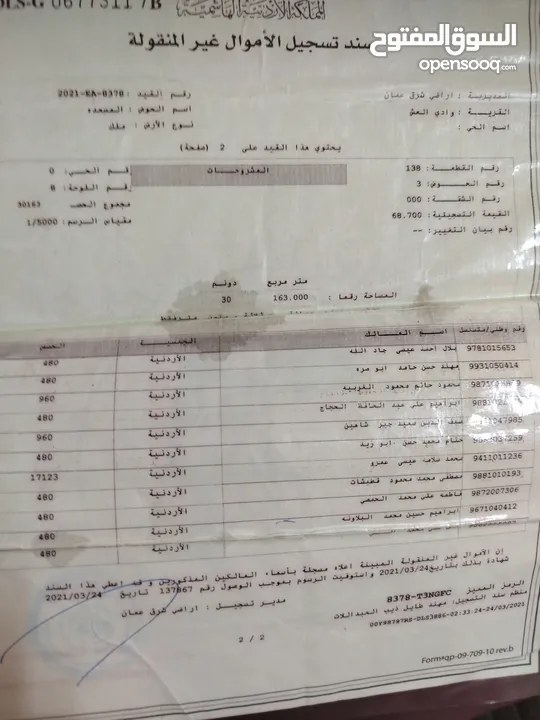 DLS-G 0677511 7/B
المملكة الأردنية الهاشمية
السوق المفتوح
opensooq.com
سند تسجيل الأموال غير المنقولة
المديرية : اراضي شرق عمان
رقم القيد : 2021-EA-8378
القرية : وادي العش
اسم الحوض : المصعده
اسم الحي :
نوع الأرض : ملك
يحتوي هذا القيد على 2 (صفحة)
رقم القطعة : 138
المشروحات
رقم الحي : 0
رقم الحوض : 3
رقم اللوحة : 8
رقم الشقة : 000
مجموع الحصص 30163
القيمة التسجيلية : 68.700
مقياس الرسم : 1/5000
رقم بيان التغيير : --
متر مربع دونم
المساحة رقما : 163.000 30
رقم وطني/ اسم المالك الجنسية الحصص
9781015653 بلال احمد عيسى جاد الله الأردنية 480
9931050414 مهند حسن حامد ابو مره الأردنية 480
محمود حاتم محمود الأردنية 960
ابراهيم علي عبد الحافظ الحجاج الأردنية 480
جبر شاهين الأردنية 960
حسام محمد حسن ابو زيد الأردنية 480
9411011236 محمد سلامه عيسى عمرو الأردنية 17123
9881010193 مصطفى محمد محمود قطيشات الأردنية 480
9872007306 فاطمه علي محمد الحمصي الأردنية 480
9671040412 ابراهيم حسين محمد البلاونه الأردنية 480
الأردنية 480
إن الأموال غير المنقولة المبينة اعلاه مسجلة بأسماء المالكين المذكورين و قد اعطي هذا السند
شهادة بذلك بتاريخ 2021/03/24 واستوفيت الرسوم بموجب الوصول رقم 137867 تاريخ 2021/03/24
الرمز المميز 8378-T3NGFC
مدير تسجيل : اراضي شرق عمان
منظم سند التسجيل: مهند طايل ذيب العبداللات
2 / 2
Form#qp-09-709-10 rev.b